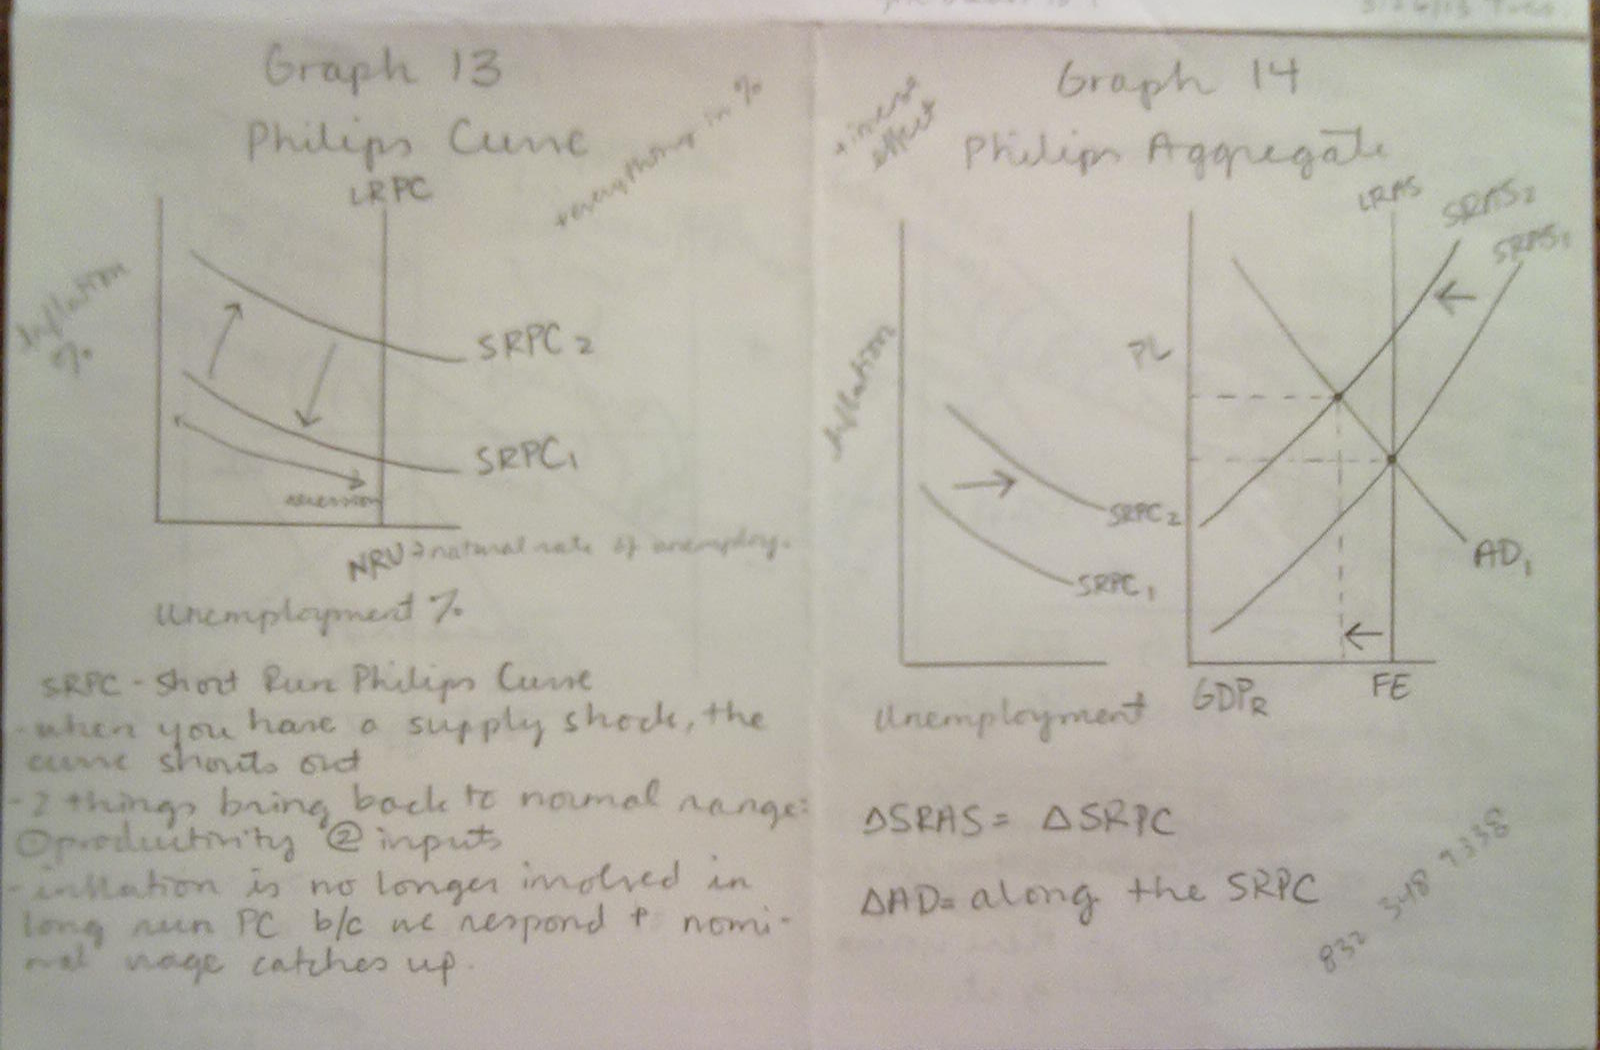 Graph 13
Philips Curve
+everything in %
LRPC
Inflation
%
SRPC2
SRPC1
recession
NRU → natural rate of unemploy.
Unemployment %
SRPC - Short Run Philips Curve
- when you have a supply shock, the
curve shouts out
- 2 things bring back to normal range:
① productivity ② inputs
- inflation is no longer involved in
long run PC b/c we respond + nomi-
nal wage catches up.
Graph 14
+inverse
effect
Philips Aggregate
Inflation
SRPC2
SRPC1
Unemployment
PL
LRAS
SRAS2
SRAS1
AD1
GDPR
FE
ΔSRAS = ΔSRPC
ΔAD = along the SRPC
832 348 9338